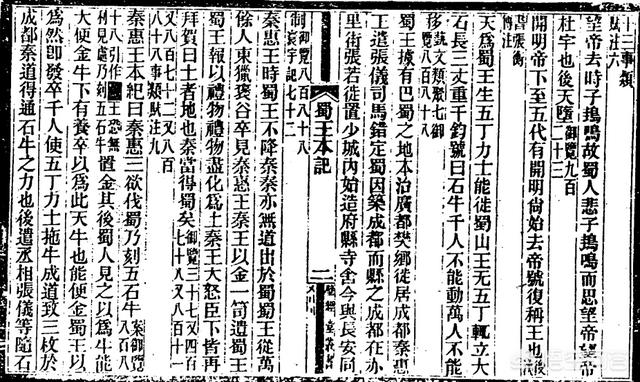 十三事類
賦注六
望帝去時子搗鳴故蜀人悲子搗鳴而思望帝望帝
杜宇也後天墮御覽九百二十三
開明帝下至五代有開明尚始去帝號復稱王也後漢書張衡傳注
天爲蜀王生五丁力士能徙蜀山王无五丁輒立大
石長三丈重千鈞號曰石牛千人不能動萬人不能
移蓺文類聚七御覽八百八十八
蜀王據有巴蜀之地本治廣都樊鄉徙居成都秦惠
王遣張儀司馬錯定蜀因築成都而縣之成都在赤
里街張若徙置少城內始造府縣寺舍今與長安同
制御覽八百八十八寰宇記七十二
蜀王本記
二
秦惠王時蜀王不降秦秦亦無道出於蜀蜀王從萬
餘人東獵褒谷卒見秦惠王秦王以金一笥遺蜀王
蜀王報以禮物禮物盡化爲土秦王大怒臣下皆再
拜賀曰土者地也秦當得蜀矣御覽三十七又四百七十八又八百十一
又八百七十二又八百八十八事類賦注九
秦惠王本紀曰秦惠王欲伐蜀乃刻五石牛案御覽八百八
十八引作王恐無相見處乃刻五石牛置金其後蜀人見之以爲牛能
大便金牛下有養卒以爲此天牛也能便金蜀王以
爲然卽發卒千人使五丁力士拖牛成道致三枚於
成都秦道得通石牛之力也後遣丞相張儀等隨石